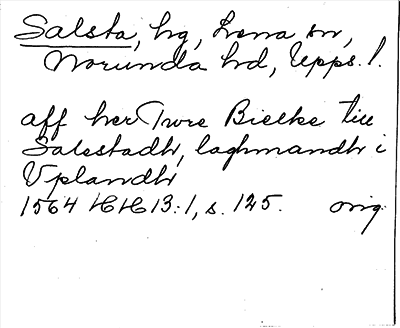 Salsta, hg, Lena sn,
Norunda hd, Upps. l.
aff her Ture Bielke till
Salestadh, laghmandh i
Vplandh
1564 HH 13:1, s. 125. orig.